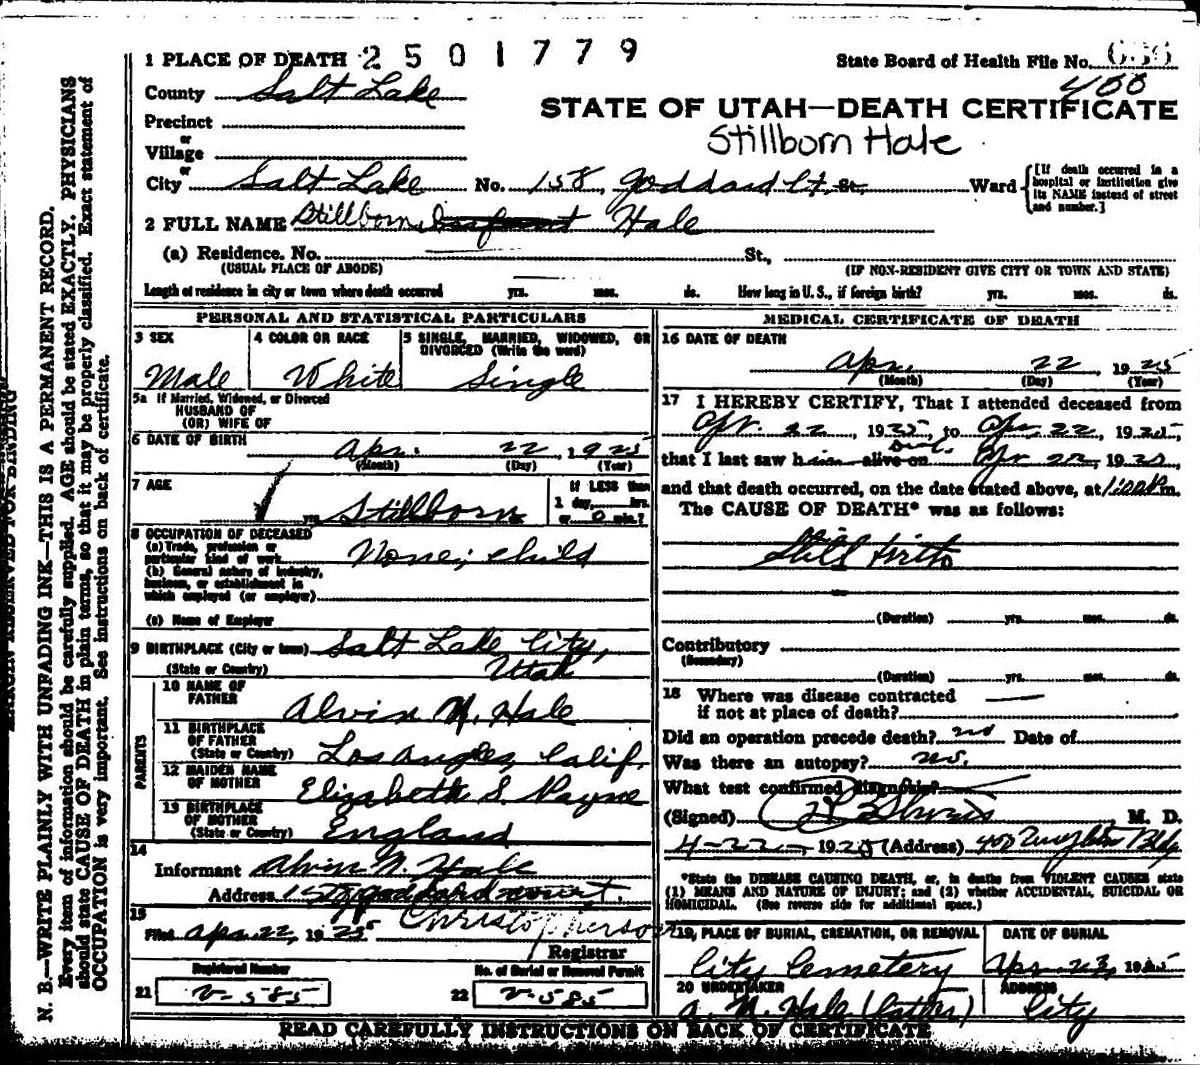 1 PLACE OF DEATH 2501779
State Board of Health File No.
400
County Salt Lake
STATE OF UTAH—DEATH CERTIFICATE
Precinct
or
Stillborn Hale
Village
or
City Salt Lake No. 158 Goddard Ct. St. Ward [If death occurred in a hospital or institution give its NAME instead of street and number.]
2 FULL NAME Stillborn Infant Hale
(a) Residence. No. St.,
(USUAL PLACE OF ABODE) (IF NON-RESIDENT GIVE CITY OR TOWN AND STATE)
Length of residence in city or town where death occurred yrs. mos. ds. How long in U. S., if foreign birth? yrs. mos. ds.
PERSONAL AND STATISTICAL PARTICULARS
3 SEX 4 COLOR OR RACE 5 SINGLE, MARRIED, WIDOWED, OR
DIVORCED (Write the word)
Male White Single
5a If Married, Widowed, or Divorced
HUSBAND OF
(OR) WIFE OF
6 DATE OF BIRTH Apr. 22 1925
(Month) (Day) (Year)
7 AGE If LESS than
yrs. Stillborn 1 day, hrs.
or 0 min.?
8 OCCUPATION OF DECEASED
(a) Trade, profession or
particular kind of work None; child
(b) General nature of industry,
business, or establishment in
which employed (or employer)
(c) Name of Employer
9 BIRTHPLACE (City or town) Salt Lake City,
(State or Country) Utah
PARENTS
10 NAME OF
FATHER Alvin N. Hale
11 BIRTHPLACE
OF FATHER
(State or Country) Los Angles, Calif.
12 MAIDEN NAME
OF MOTHER Elizabeth S. Payne
13 BIRTHPLACE
OF MOTHER
(State or Country) England
14
Informant Alvin N. Hale
Address 158 Goddard Court.
15
Filed Apr. 22, 1925 Christopherson
Registrar
Registered Number No. of Burial or Removal Permit
21 V-585 22 V-585
MEDICAL CERTIFICATE OF DEATH
16 DATE OF DEATH
Apr. 22 1925
(Month) (Day) (Year)
17 I HEREBY CERTIFY, That I attended deceased from
Apr. 22, 1925, to Apr. 22, 1925,
that I last saw him alive on Apr 22, 1925,
and that death occurred, on the date stated above, at m.
The CAUSE OF DEATH* was as follows:
Still birth
(Duration) yrs. mos. ds.
Contributory
(Secondary)
(Duration) yrs. mos. ds.
18 Where was disease contracted
if not at place of death?
Did an operation precede death? no Date of
Was there an autopsy? no.
What test confirmed diagnosis?
(Signed) M. D.
4-22-, 1925 (Address) 400
*State the DISEASE CAUSING DEATH, or, in deaths from VIOLENT CAUSES state
(1) MEANS AND NATURE OF INJURY; and (2) whether ACCIDENTAL, SUICIDAL OR
HOMICIDAL. (See reverse side for additional space.)
19, PLACE OF BURIAL, CREMATION, OR REMOVAL DATE OF BURIAL
City Cemetery Apr. 23, 1925
20 UNDERTAKER ADDRESS
A. N. Hale (father) City
READ CAREFULLY INSTRUCTIONS ON BACK OF CERTIFICATE
MARGIN RESERVED FOR BINDING
N. B.—WRITE PLAINLY WITH UNFADING INK—THIS IS A PERMANENT RECORD.
Every item of information should be carefully supplied. AGE should be stated EXACTLY. PHYSICIANS
should state CAUSE OF DEATH in plain terms, so that it may be properly classified. Exact statement of
OCCUPATION is very important. See instructions on back of certificate.